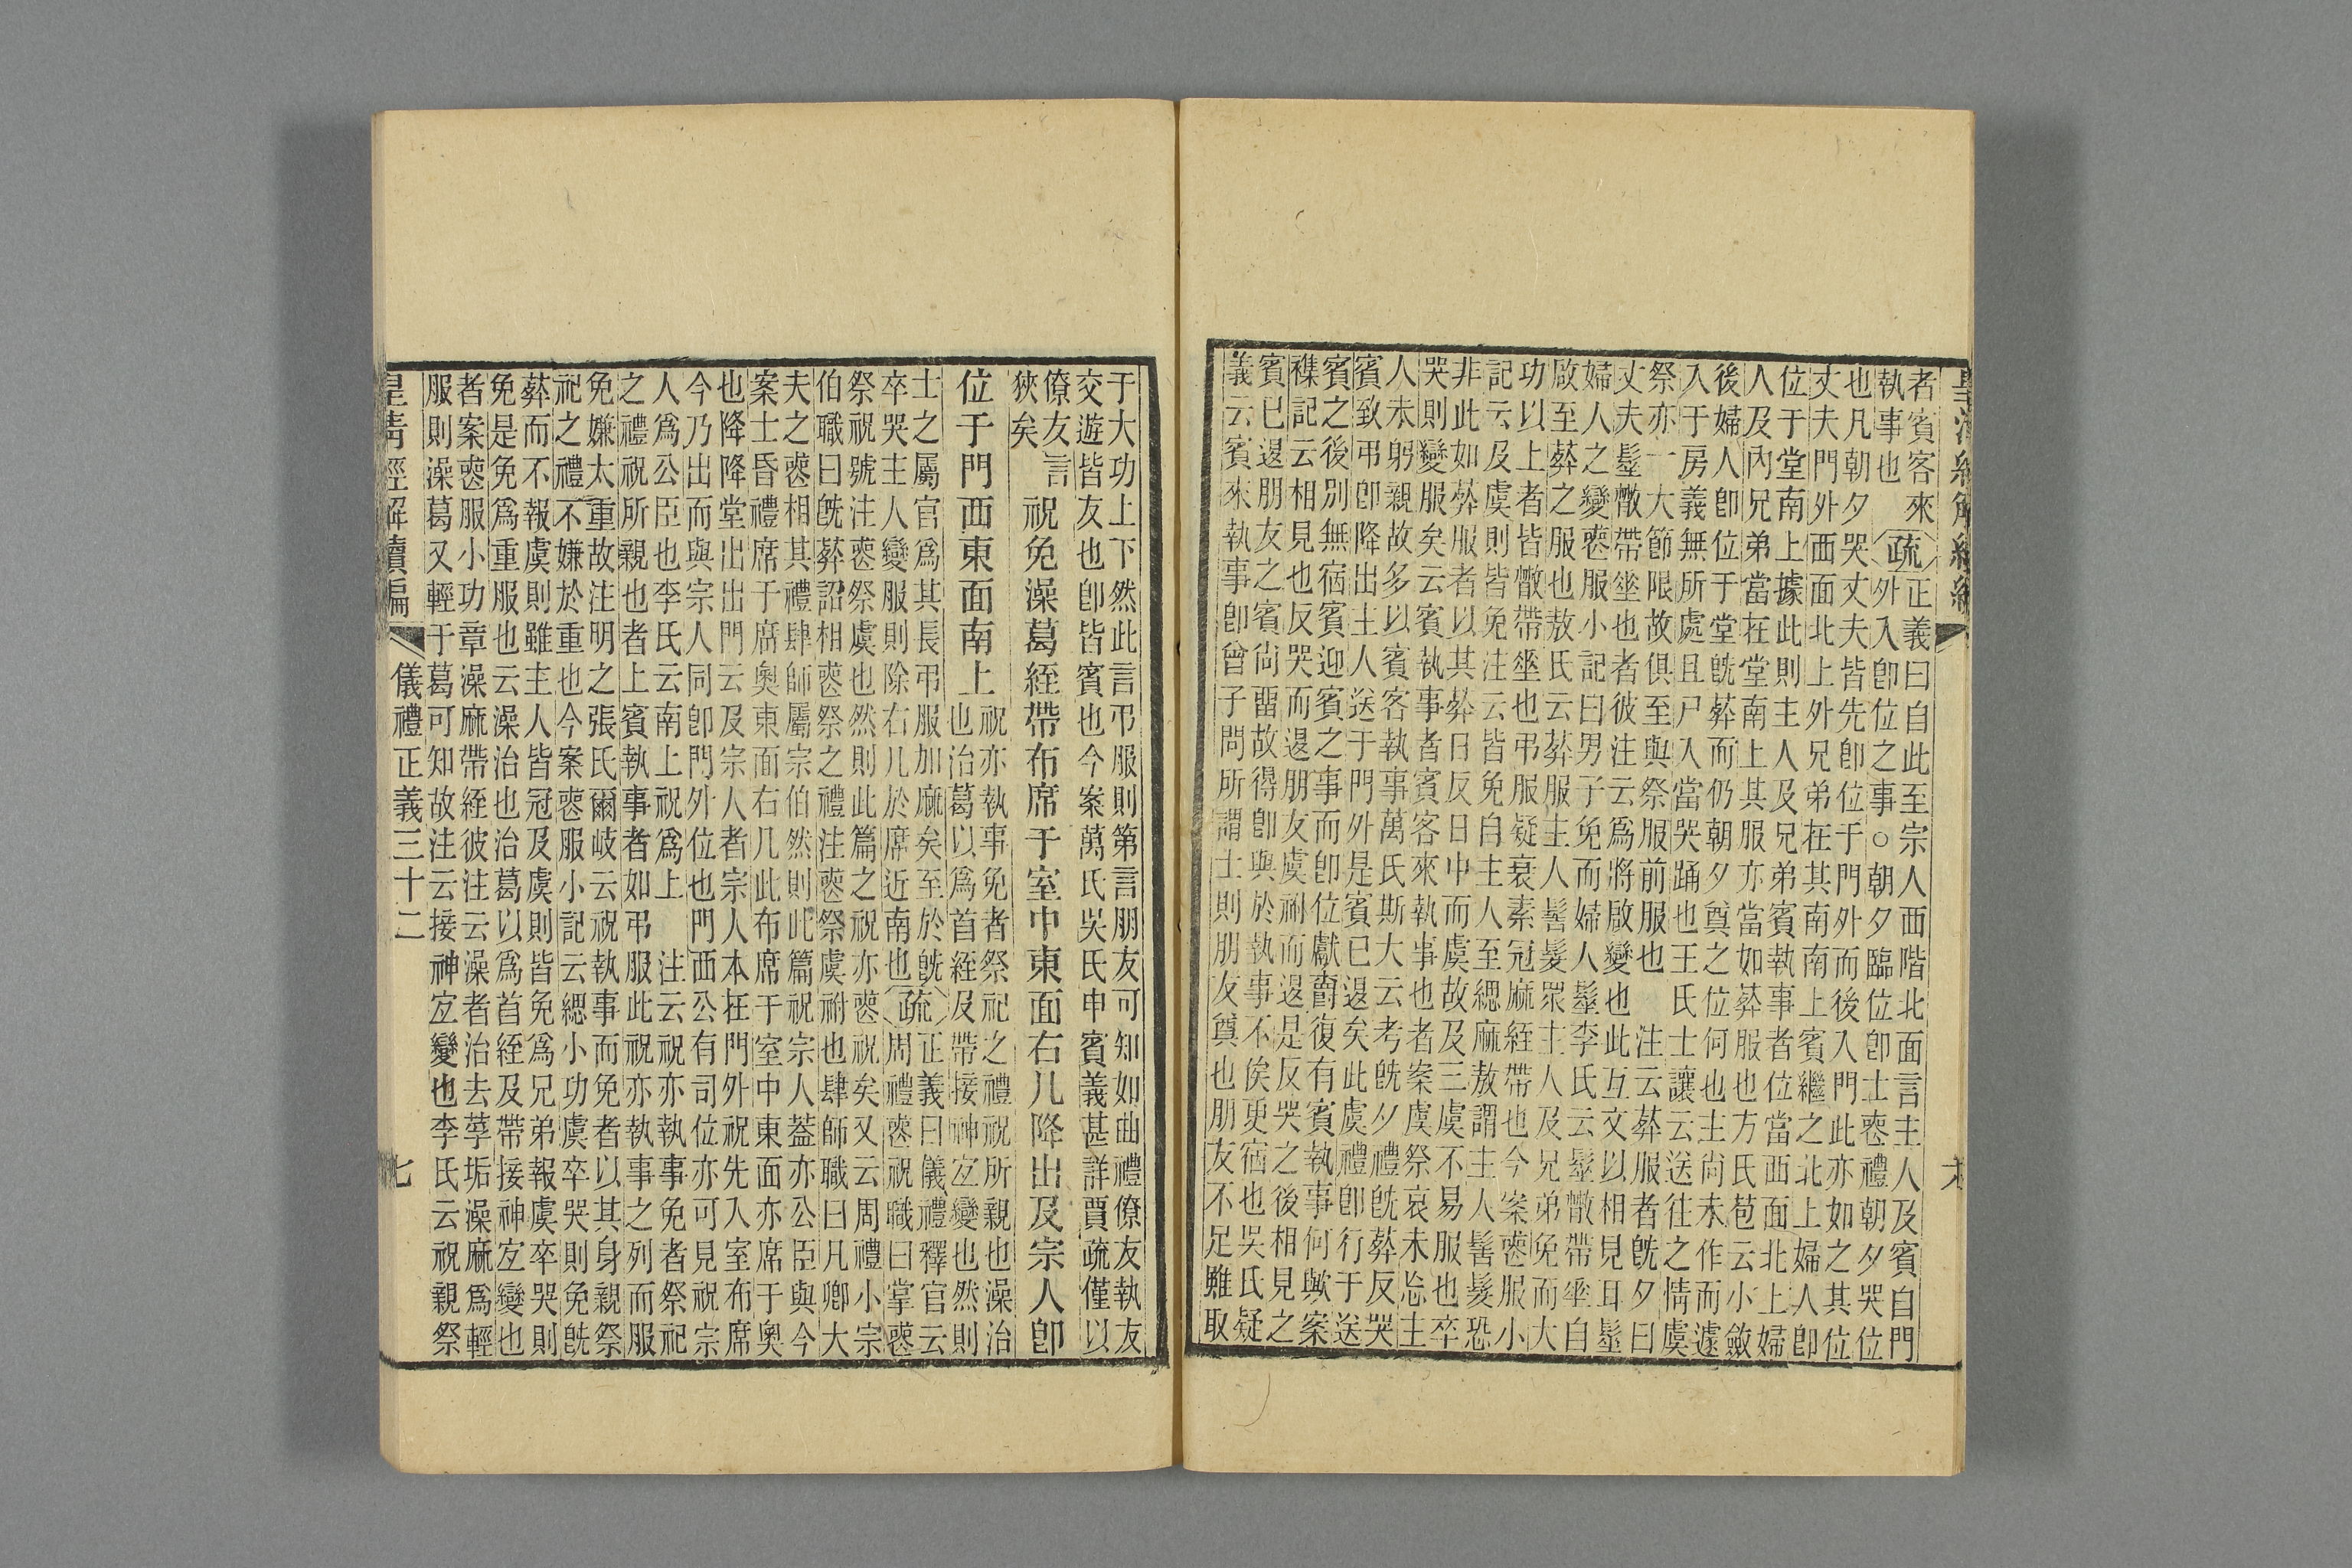 者賓客來
執事也
疏
正義曰自此至宗人西階北面言主人及賓自門
外入卽位之事○朝夕臨位卽士䘮禮朝夕哭位
也凡朝夕哭丈夫皆先卽位于門外而後入門此亦如之其位
丈夫門外西面北上外兄弟在其南南上賓繼之北上婦人卽
位于堂南上據此則主人及兄弟賓執事者位當西面北上婦
人及內兄弟當在堂南上其服亦當如葬服也方氏苞云小斂
後婦人卽位于堂旣葬而仍朝夕奠之位何也主尙未作而遽
入于房義無所處且尸入當哭踊也王氏士讓云送往之情虞
祭亦一大節限故俱至與祭服前服也 注云葬服者旣夕曰
丈夫髽散帶垂也者彼注云爲將啟變也此互文以相見耳髽
婦人之變䘮服小記曰男子免而婦人髽李氏云髽散帶垂自
啟至葬之服也敖氏云葬服主人髺髮眾主人及兄弟免而大
功以上者皆散帶垂也弔服疑衰素冠麻絰帶也今案䘮服小
記云及虞則皆免注云皆免自主人至緦麻敖謂主人髺髮恐
非此如葬服者以其葬日反日中而虞故及三虞不易服也卒
哭則變服矣云賓執事者賓客來執事也者案虞祭哀未忘主
人未躬親故多以賓客執事萬氏斯大云考旣夕禮旣葬反哭
賓致弔卽降出主人送于門外是賓已退矣此虞禮卽行于送
賓之後別無宿賓迎賓之事而卽位獻爵復有賓執事何歟案
襍記云相見也反哭而退朋友虞祔而退是反哭之後相見之
賓已退朋友之賓尙畱故得卽與於執事不俟更宿也吳氏疑
義云賓來執事卽曾子問所謂士則朋友奠也朋友不足雖取
于大功上下然此言弔服則第言朋友可知如曲禮僚友執友
交遊皆友也卽皆賓也今案萬氏吳氏申賓義甚詳賈疏僅以
僚友言
狹矣
祝免澡葛絰帶布席于室中東面右几降出及宗人卽
位于門西東面南上
祝亦執事免者祭祀之禮祝所親也澡治
也治葛以爲首絰及帶接神宐變也然則
士之屬官爲其長弔服加麻矣至於旣
卒哭主人變服則除右几於席近南也
疏
正義曰儀禮釋官云
周禮䘮祝職曰掌䘮
祭祝號注䘮祭虞也然則此篇之祝亦䘮祝矣又云周禮小宗
伯職曰旣葬詔相䘮祭之禮注䘮祭虞祔也肆師職曰凡卿大
夫之䘮相其禮肆師屬宗伯然則此篇祝宗人葢亦公臣與今
案士昏禮席于席奧東面右几此布席于室中東面亦席于奧
也降降堂出出門云及宗人者宗人本在門外祝先入室布席
今乃出而與宗人同卽門外位也門西公有司位亦可見祝宗
人爲公臣也李氏云南上祝爲上 注云祝亦執事免者祭祀
之禮祝所親也者上賓執事者如弔服此祝亦執事之列而服
免嫌太重故注明之張氏爾岐云祝執事而免者以其身親祭
祀之禮不嫌於重也今案䘮服小記云緦小功虞卒哭則免旣
葬而不報虞則雖主人皆冠及虞則皆免爲兄弟報虞卒哭則
免是免爲重服也云澡治也治葛以爲首絰及帶接神宐變也
者案䘮服小功章澡麻帶絰彼注云澡者治去莩垢澡麻爲輕
服則澡葛又輕于葛可知故注云接神宐變也李氏云祝親祭
皇淸經解續編
儀禮正義三十二
七